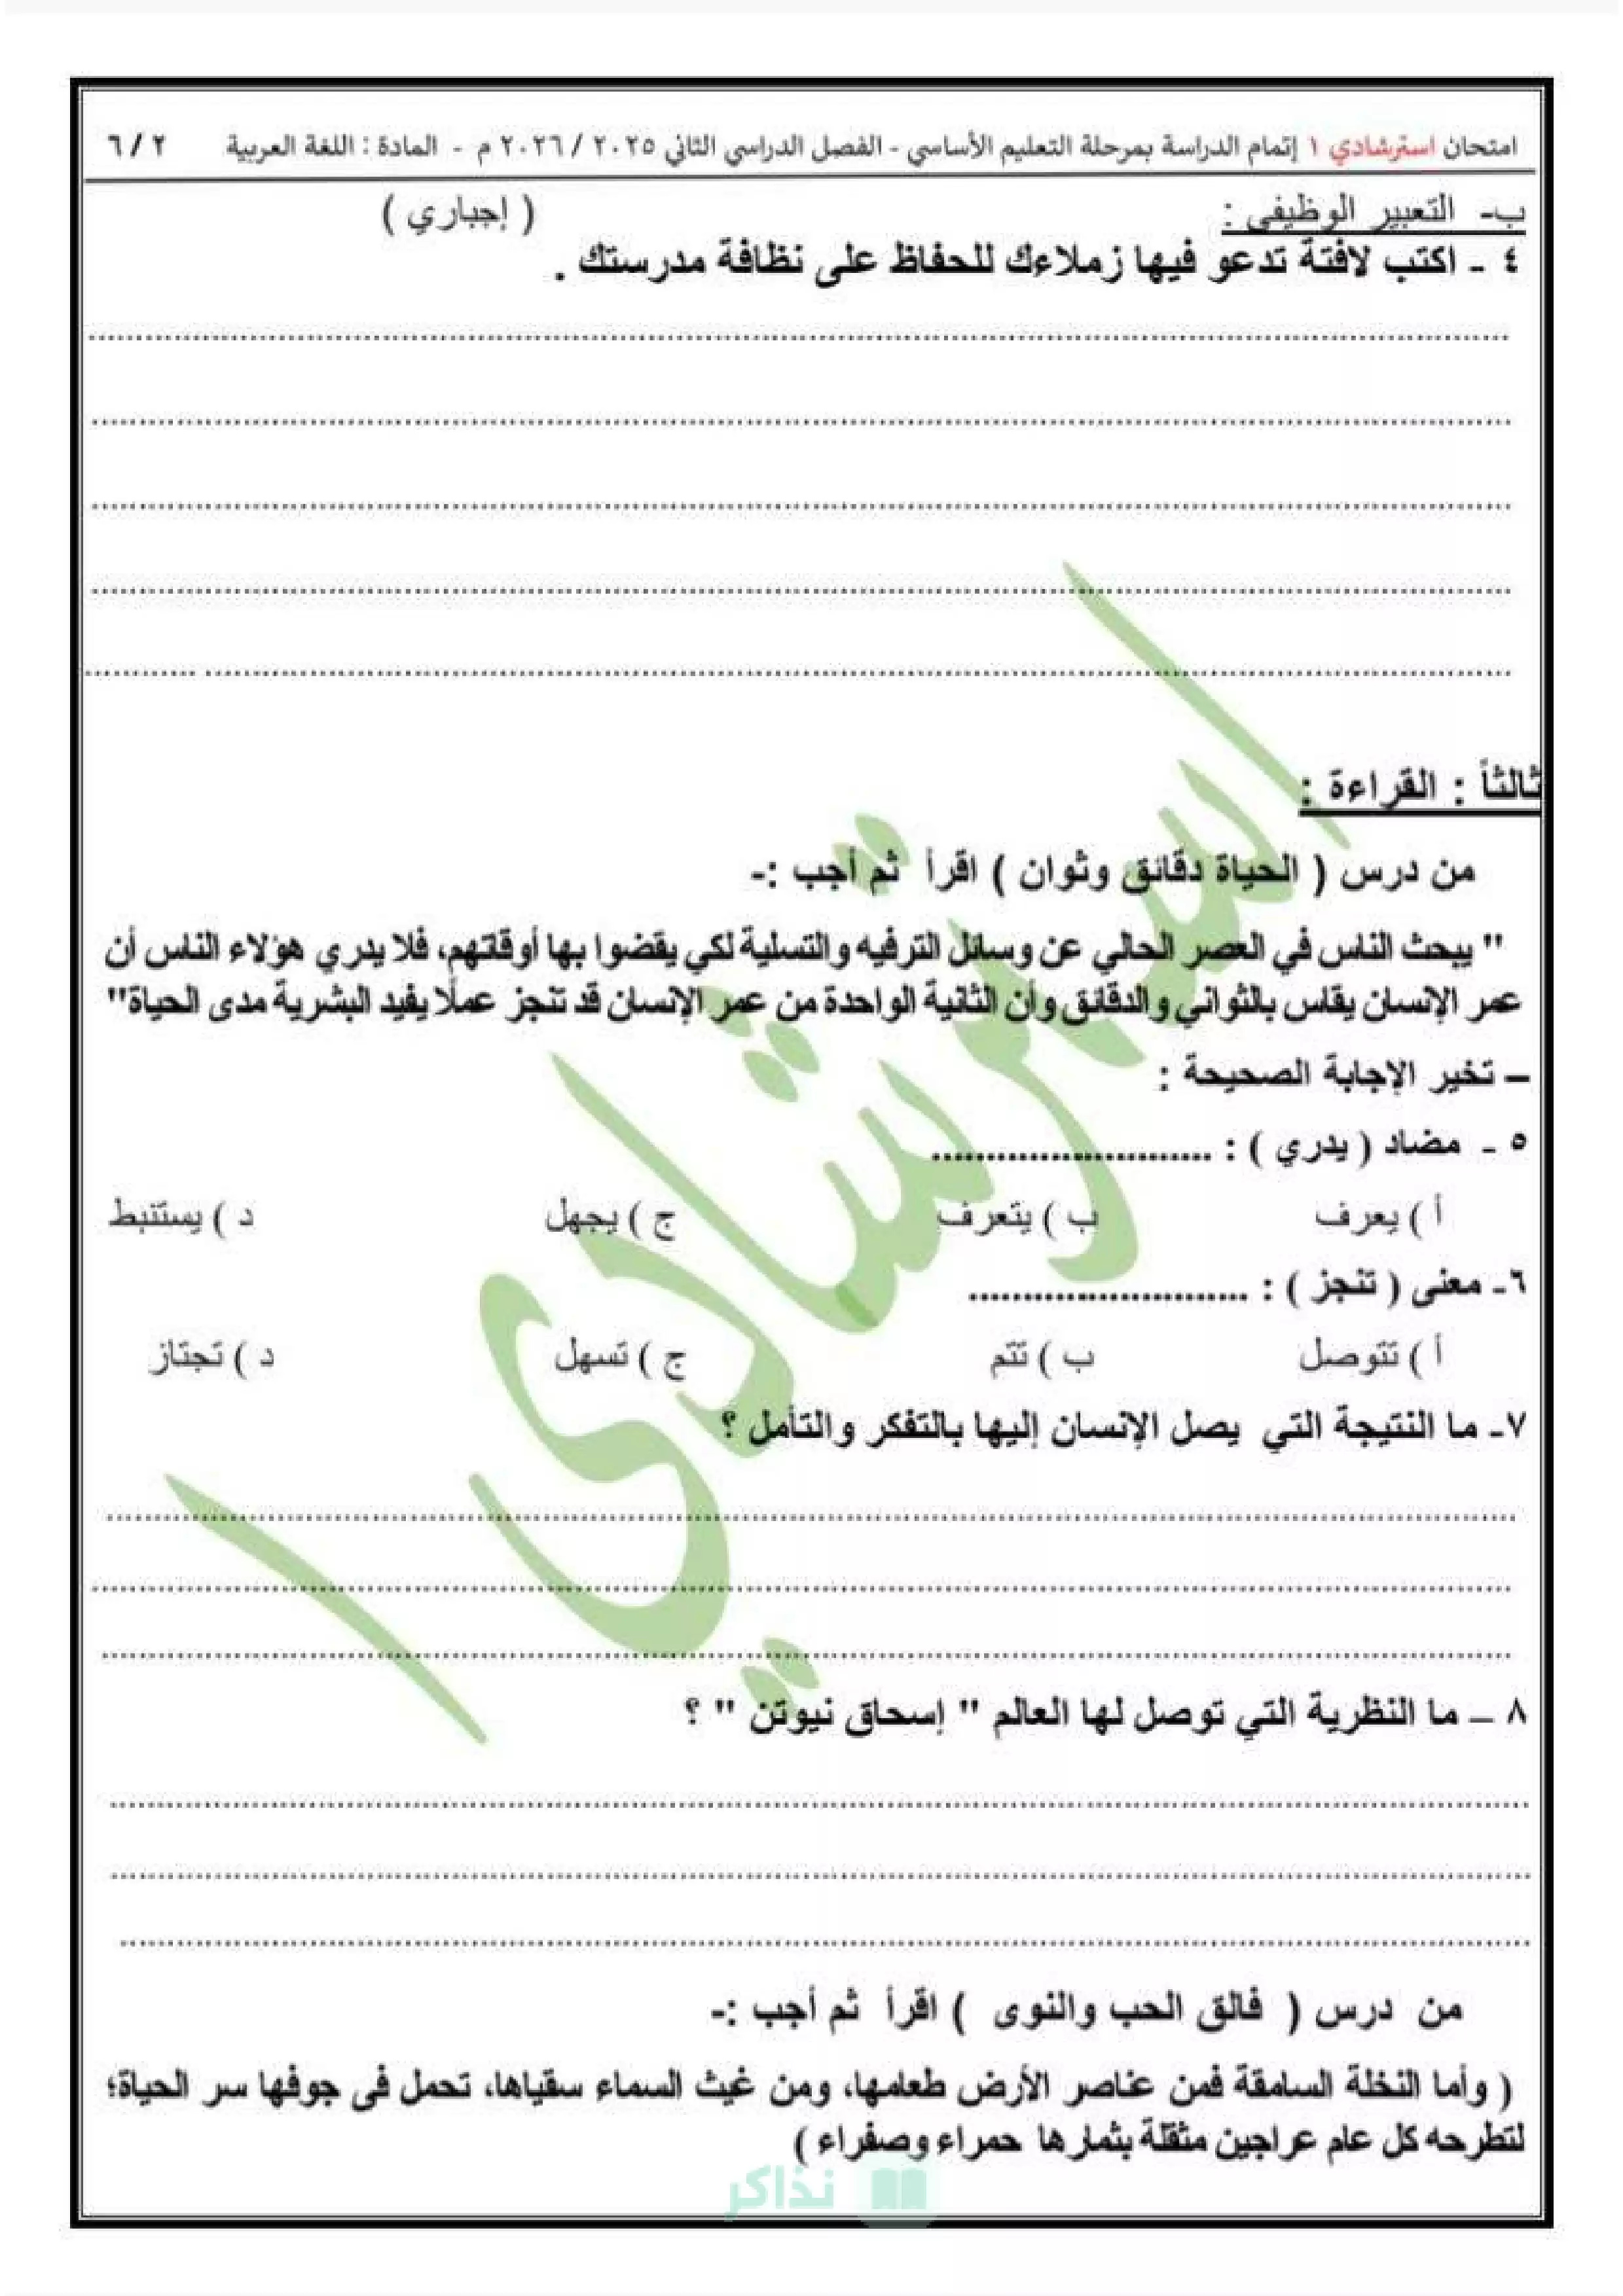 امتحان استرشادي ١ إتمام الدراسة بمرحلة التعليم الأساسي - الفصل الدراسي الثاني ٢٠٢٥ / ٢٠٢٦ م - المادة : اللغة العربية ٢ / ٦
ب- التعبير الوظيفى : ( إجباري )
٤ - اكتب لافتة تدعو فيها زملاءك للحفاظ على نظافة مدرستك .
ثالثاً : القراءة :
من درس ( الحياة دقائق وثوان ) اقرأ ثم أجب :-
" يبحث الناس في العصر الحالي عن وسائل الترفيه والتسلية لكي يقضوا بها أوقاتهم، فلا يدري هؤلاء الناس أن
عمر الإنسان يقاس بالثواني والدقائق وأن الثانية الواحدة من عمر الإنسان قد تنجز عملًا يفيد البشرية مدى الحياة"
– تخير الإجابة الصحيحة :
٥ - مضاد ( يدري ) : ..........................
أ ) يعرف ب ) يتعرف ج ) يجهل د ) يستنبط
٦- معنى ( تنجز ) : ..........................
أ ) تتوصل ب ) تتم ج ) تسهل د ) تجتاز
٧- ما النتيجة التي يصل الإنسان إليها بالتفكر والتأمل ؟
٨ – ما النظرية التي توصل لها العالم " إسحاق نيوتن " ؟
من درس ( فالق الحب والنوى ) اقرأ ثم أجب :-
( وأما النخلة السامقة فمن عناصر الأرض طعامها، ومن غيث السماء سقياها، تحمل فى جوفها سر الحياة؛
لتطرحه كل عام عراجين مثقلة بثمارها حمراء وصفراء )
استرشادى ١
نذاكر